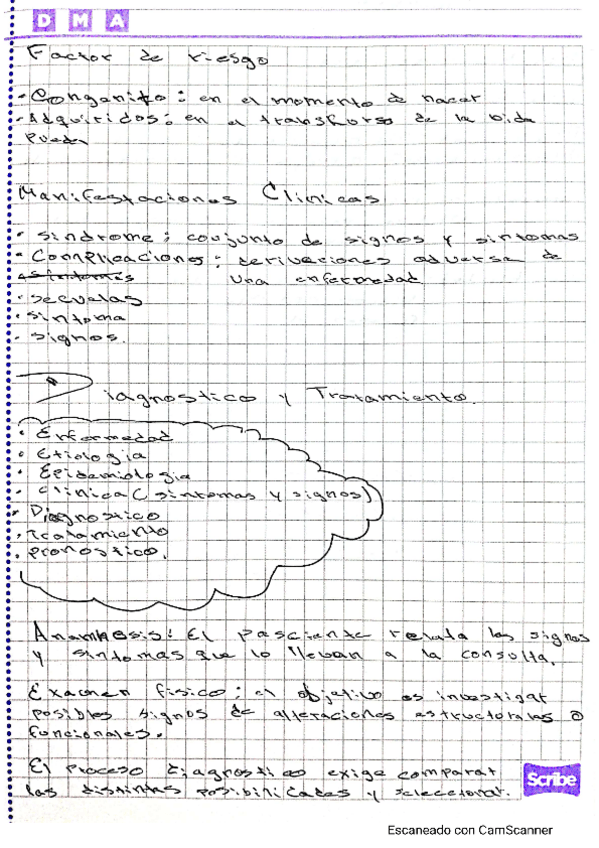 D M A
Factor de riesgo
• Congenito : en el momento de nacer
• Adquiridos : en el transkurso de la bida
pueden
Manifestaciones Clinicas
• sindrome ; conjunto de signos y sintomas
• Complicaciones : deribaciones adversa de
una enfermedad
• secuelas
• sintoma
• signos.
Diagnostico y Tratamiento.
• Enfermedad
• Etiologia
• Epidemiologia
• Clinica (sintomas y signos)
• Diagnostico
• Tratamiento
• pronostico.
Anamnesis: El pasciente relata los signos
y sintomas que lo llevan a la consulta.
Examen fisico ; el objetivo es investigar
posibles signos de alteraciones estructorales o
funcionales.
El proceso diagnostico exige comparar
las distintas posibilidades y seleccionar.
Scribe
Escaneado con CamScanner